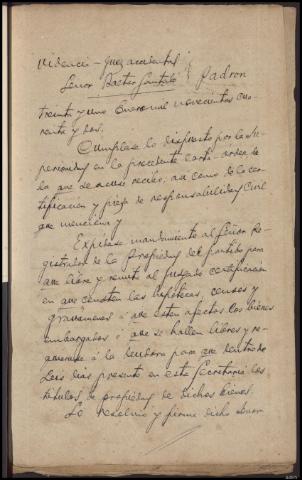 Videncia - Juez accidental
Señor Doctor } Padron
treinta y uno Enero mil novecientos cua-
renta y dos.
Cumplase lo dispuesto por la Su-
perioridad en la precedente carta-orden de
la que se acusa recibo, asi como de la cer-
tificacion y pieza de responsabilidad Civil
que menciona y
Expidase mandamiento al Señor Re-
gistrador de la Propiedad del partido para
que libre y remita al Juzgado certificacion
en que consten las hipotecas, censos y
gravamenes á que esten afectos los bienes
embargados ó que se hallen libres y re-
quierase á la deudora para que dentro de
seis dias presente en esta Secretaria los
titulos de propiedad de dichos bienes.
Lo resolvio y firma dicho Señor